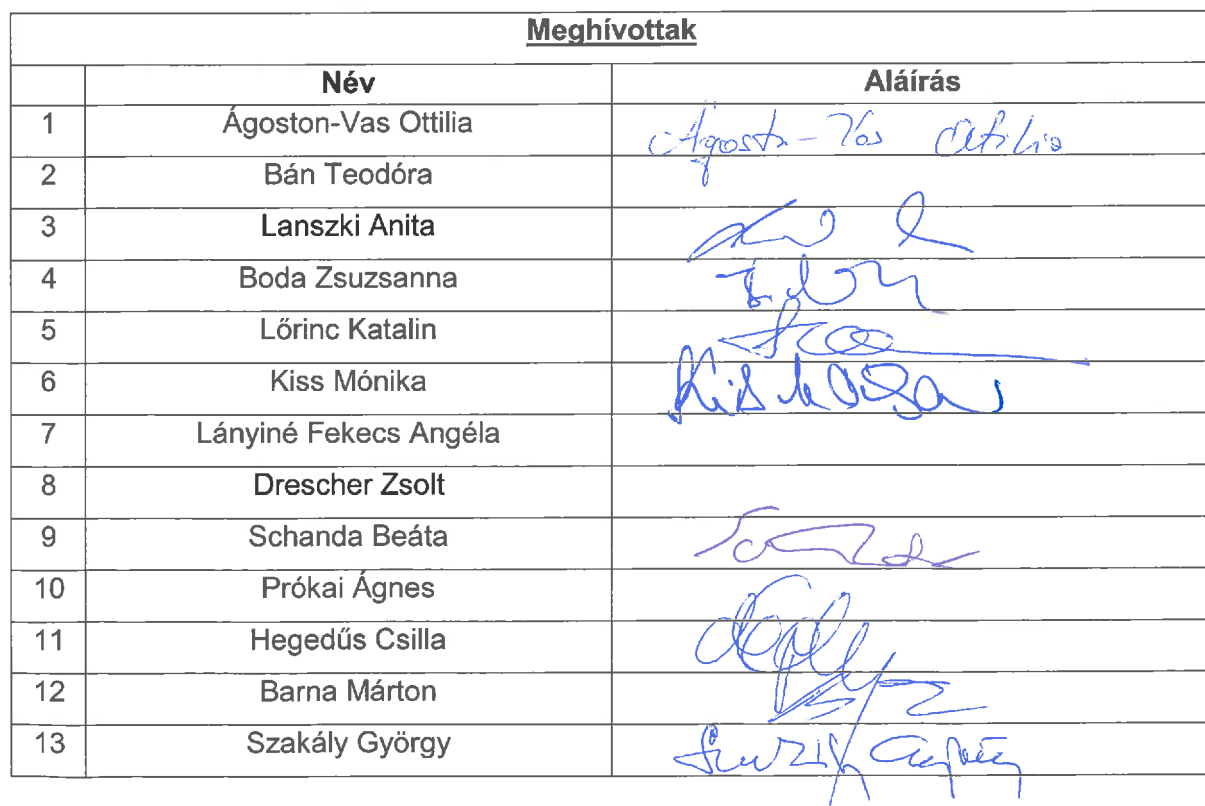 Meghívottak
Név Aláírás
1 Ágoston-Vas Ottilia Ágoston-Vas Ottilia
2 Bán Teodóra
3 Lanszki Anita
4 Boda Zsuzsanna
5 Lőrinc Katalin
6 Kiss Mónika
7 Lányiné Fekecs Angéla
8 Drescher Zsolt
9 Schanda Beáta
10 Prókai Ágnes
11 Hegedűs Csilla
12 Barna Márton
13 Szakály György